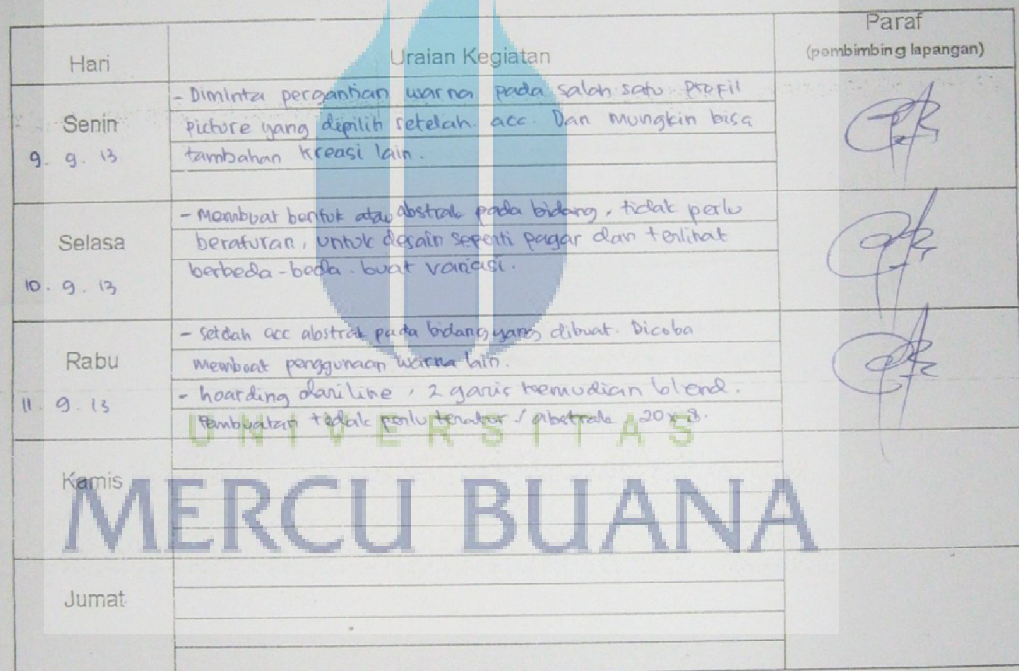 Hari
Uraian Kegiatan
Paraf
(pembimbing lapangan)
Senin
9. 9. 13
- Diminta pergantian warna pada salah satu profil
picture yang dipilih setelah acc. Dan mungkin bisa
tambahan kreasi lain.
Selasa
10. 9. 13
- Membuat bentuk atau abstrak pada bidang, tidak perlu
beraturan, untuk desain seperti pagar dan terlihat
berbeda-beda. buat variasi.
Rabu
11. 9. 13
- setelah acc abstrak pada bidang yang dibuat. Dicoba
membuat penggunaan warna lain.
- hoarding dari line, 2 garis kemudian blend.
Pembuatan tidak perlu teratur / abstrak 20 x 8.
UNIVERSITAS
Kamis
MERCU BUANA
Jumat